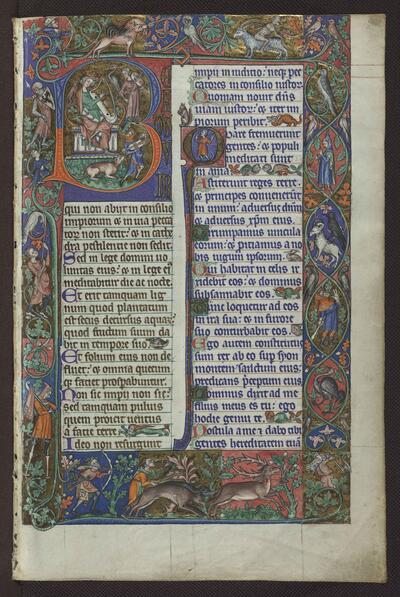 B
qui non abiit in consilio
impiorum et in uia pecca
tor non stetit: et in cathe
dra pestilentie non sedit.
Sed in lege domini uo
luntas eius: et in lege ei
meditabitur die ac nocte.
Et erit tamquam lig
num quod plantatum
est secus decursus aquar
quod fructum suum da
bit in tempore suo
Et folium eius non de
fluet: et omnia quecum
faciet prosperabuntur.
Non sic impii non sic:
sed tamquam puluis
quem proicit uentus
a facie terre
Ideo non resurgunt
impii in iudicio: neque pec
catores in consilio iustor
Quoniam nouit dns
uiam iustor: et iter im
piorum peribit.
Quare fremuerunt
gentes: et populi
meditati sunt
inania
Astiterunt reges terre:
et principes conuenerunt
in unum: aduersus dnm
et aduersus xpm eius.
Dirumpamus uincula
eorum: et proiciamus a no
bis iugum ipsorum.
Qui habitat in celis ir
ridebit eos: et dominus
subsannabit eos.
Tunc loquetur ad eos
in ira sua: et in furore
suo conturbabit eos.
Ego autem constitutus
sum rex ab eo super syon
montem sanctum eius:
predicans preceptum eius
Dominus dixit ad me
filius meus es tu: ego
hodie genui te.
Postula a me et dabo tibi
gentes hereditatem tuam